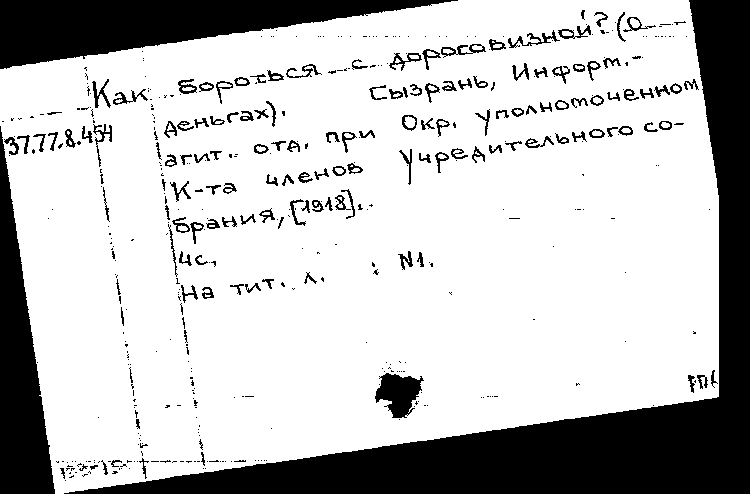 Как бороться с дороговизной? (О
37.77.8.454
деньгах). Сызрань, Информ.-
агит. отд. при Окр. уполномоченном
К-та членов Учредительного со-
брания, [1918].
4с.
На тит. л. : N1.